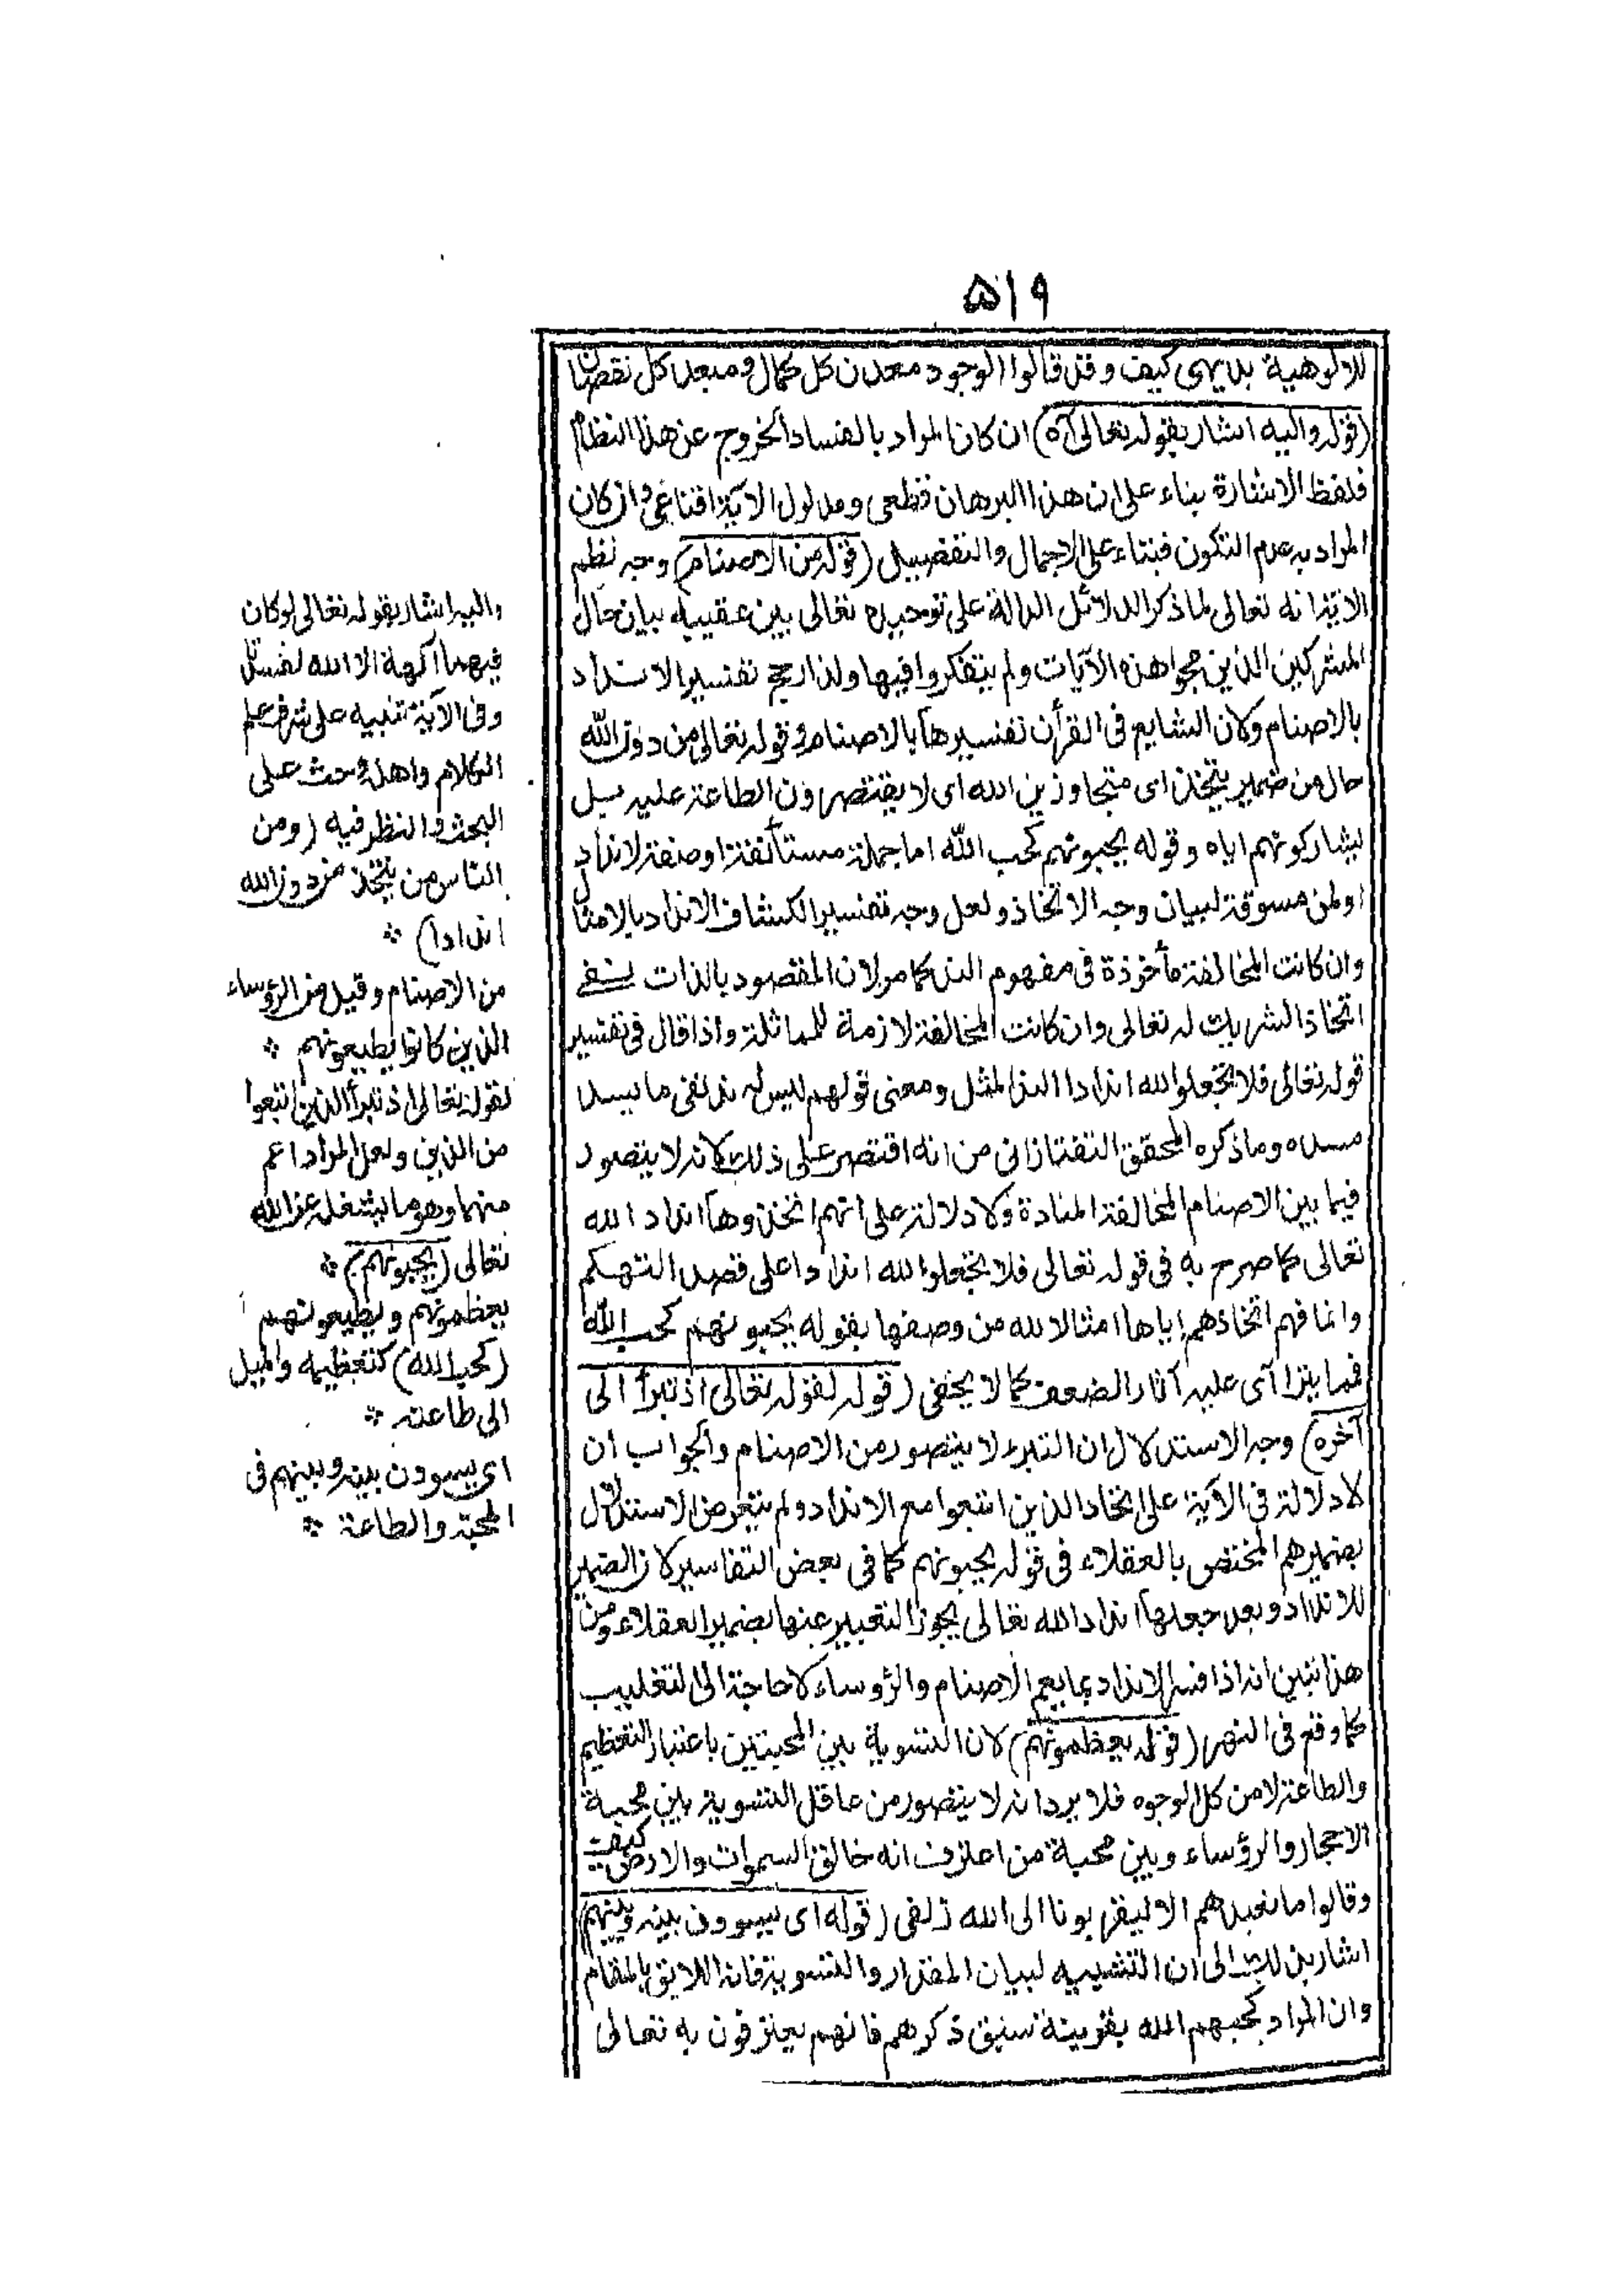 ۵۱۹
للالوهية بديهى كيف وقد قالوا الوجود معدن كل كمال ومبعد كل نقصان
(قوله واليه اشار بقوله تعالى آه) ان كان المراد بالفساد الخروج عن هذا النظام
فلفظ الاشارة بناء على ان هذا البرهان قطعى ومدلول الآية اقناعى وان كان
المراد به عدم التكون فبناء على الاجمال والتفصيل (قوله من الاصنام) وجه نظم
الآية انه تعالى لما ذكر الدلائل الدالة على توحيده تعالى بين عقيبه بيان حال
المشركين الذين مجوا هذه الآيات ولم يتفكروا فيها ولذا رجح تفسير الانداد
بالاصنام وكان الشايع فى القرأن تفسيرها بالاصنام وقوله تعالى من دون الله
حال من ضمير يتخذ اى متجاوزين الله اى لا يقتصرون الطاعة عليه بل
يشاركونهم اياه وقوله يحبونهم كحب الله اما جملة مستأنفة او صفة لانداد
او لمن مسوقة لبيان وجه الاتخاذ ولعل وجه تفسير الكشاف الانداد بالامثال
وان كانت المخالفة مأخوذة فى مفهوم الند كما مر لان المقصود بالذات نفى
اتخاذ الشريك له تعالى وان كانت المخالفة لازمة للمماثلة واذا قال فى تفسير
قوله تعالى فلا تجعلوا لله اندادا الند المثل ومعنى قولهم ليس له ند نفى ما يسد
مسده وما ذكره المحقق التفتازانى من انه اقتصر على ذلك لانه لا يتصور
فيما بين الاصنام المخالفة المنادة ولا دلالة على انهم اتخذوها اندادا لله
تعالى كما صرح به فى قوله تعالى فلا تجعلوا لله اندادا على قصد التهكم
وانما فهم اتخاذهم اياها امثالا لله من وصفها بقوله يحبونهم كحب الله
فما يتراآى عليه آثار الضعف كما لا يخفى (قوله لقوله تعالى اذ تبرأ الى
آخره) وجه الاستدلال ان التبرء لا يتصور من الاصنام والجواب ان
لا دلالة فى الآية على اتحاد الذين اتبعوا مع الانداد ولم يتعرض الاستدلال
بضميرهم المختص بالعقلاء فى قوله يحبونهم كما فى بعض التفاسير لان الضمير
للانداد وبعد جعلها اندادا لله تعالى يجوز التعبير عنها بضمير العقلاء ومن
هذا تبين انه اذا فسر الانداد بما يعم الاصنام والرؤساء لا حاجة الى التغليب
كما وقع فى النهر (قوله يعظمونهم) لان التسوية بين المحبتين باعتبار التعظيم
والطاعة لا من كل الوجوه فلا يرد انه لا يتصور من عاقل التسوية بين محبة
الاحجار والرؤساء وبين محبة من اعترف انه خالق السموات والارض كيف
وقالوا ما نعبدهم الا ليقربونا الى الله زلفى (قوله اى يسوون بينه وبينهم)
اشار بذلك الى ان التشبيه لبيان المقدار والتسوية فانه اللايق بالمقام
وان المراد كحبهم الله بقرينة سبق ذكرهم فانهم يعترفون به تعالى
واليه اشار بقوله تعالى لو كان
فيهما آلهة الا الله لفسدتا
وفى الآية تنبيه على شرف علم
الكلام واهله وحث على
البحث والنظر فيه (ومن
الناس من يتخذ من دون الله
اندادا) ⁘
من الاصنام وقيل من الرؤساء
الذين كانوا يطيعونهم ⁘
لقوله تعالى اذ تبرأ الذين اتبعوا
من الذين ولعل المراد اعم
منهما وهو ما يشغله عن الله
تعالى (يحبونهم) ⁘
يعظمونهم ويطيعونهم
(كحب الله) كتعظيمه والميل
الى طاعته ⁘
اى يسوون بينه وبينهم فى
المحبة والطاعة ⁘